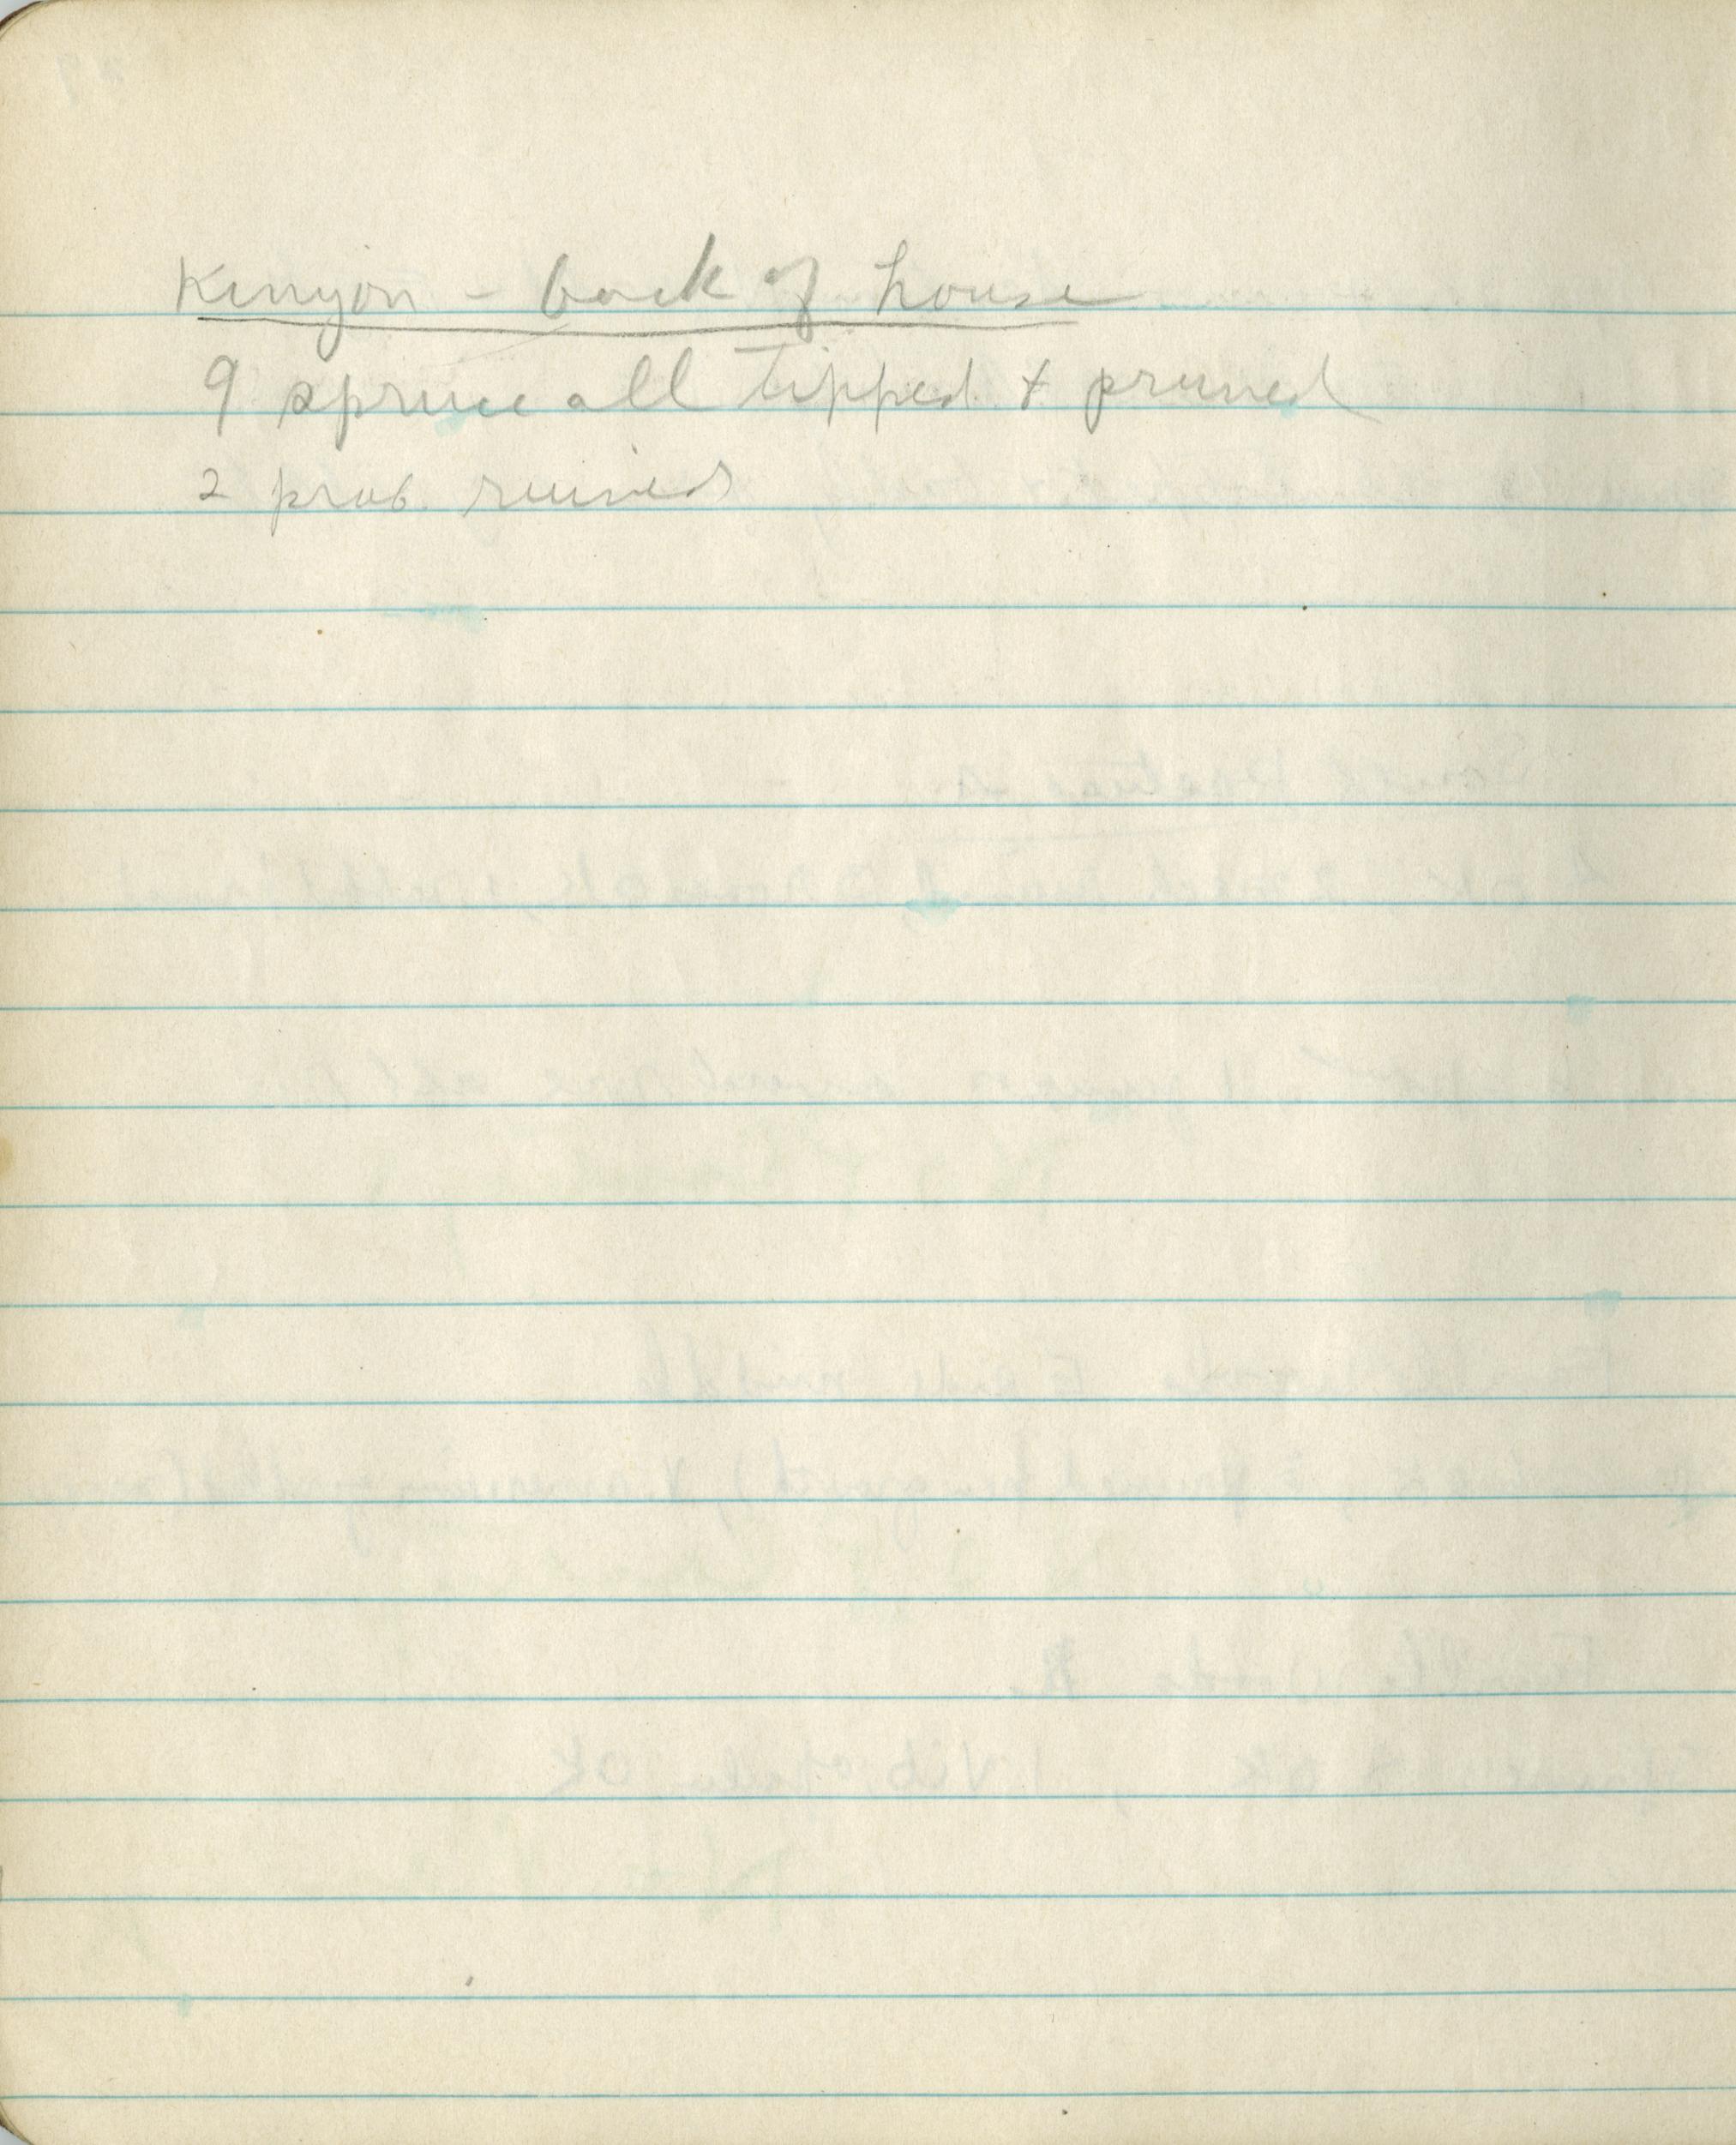 Kenyon - back of house
9 spruce all tipped + pruned
2 prob. ruined